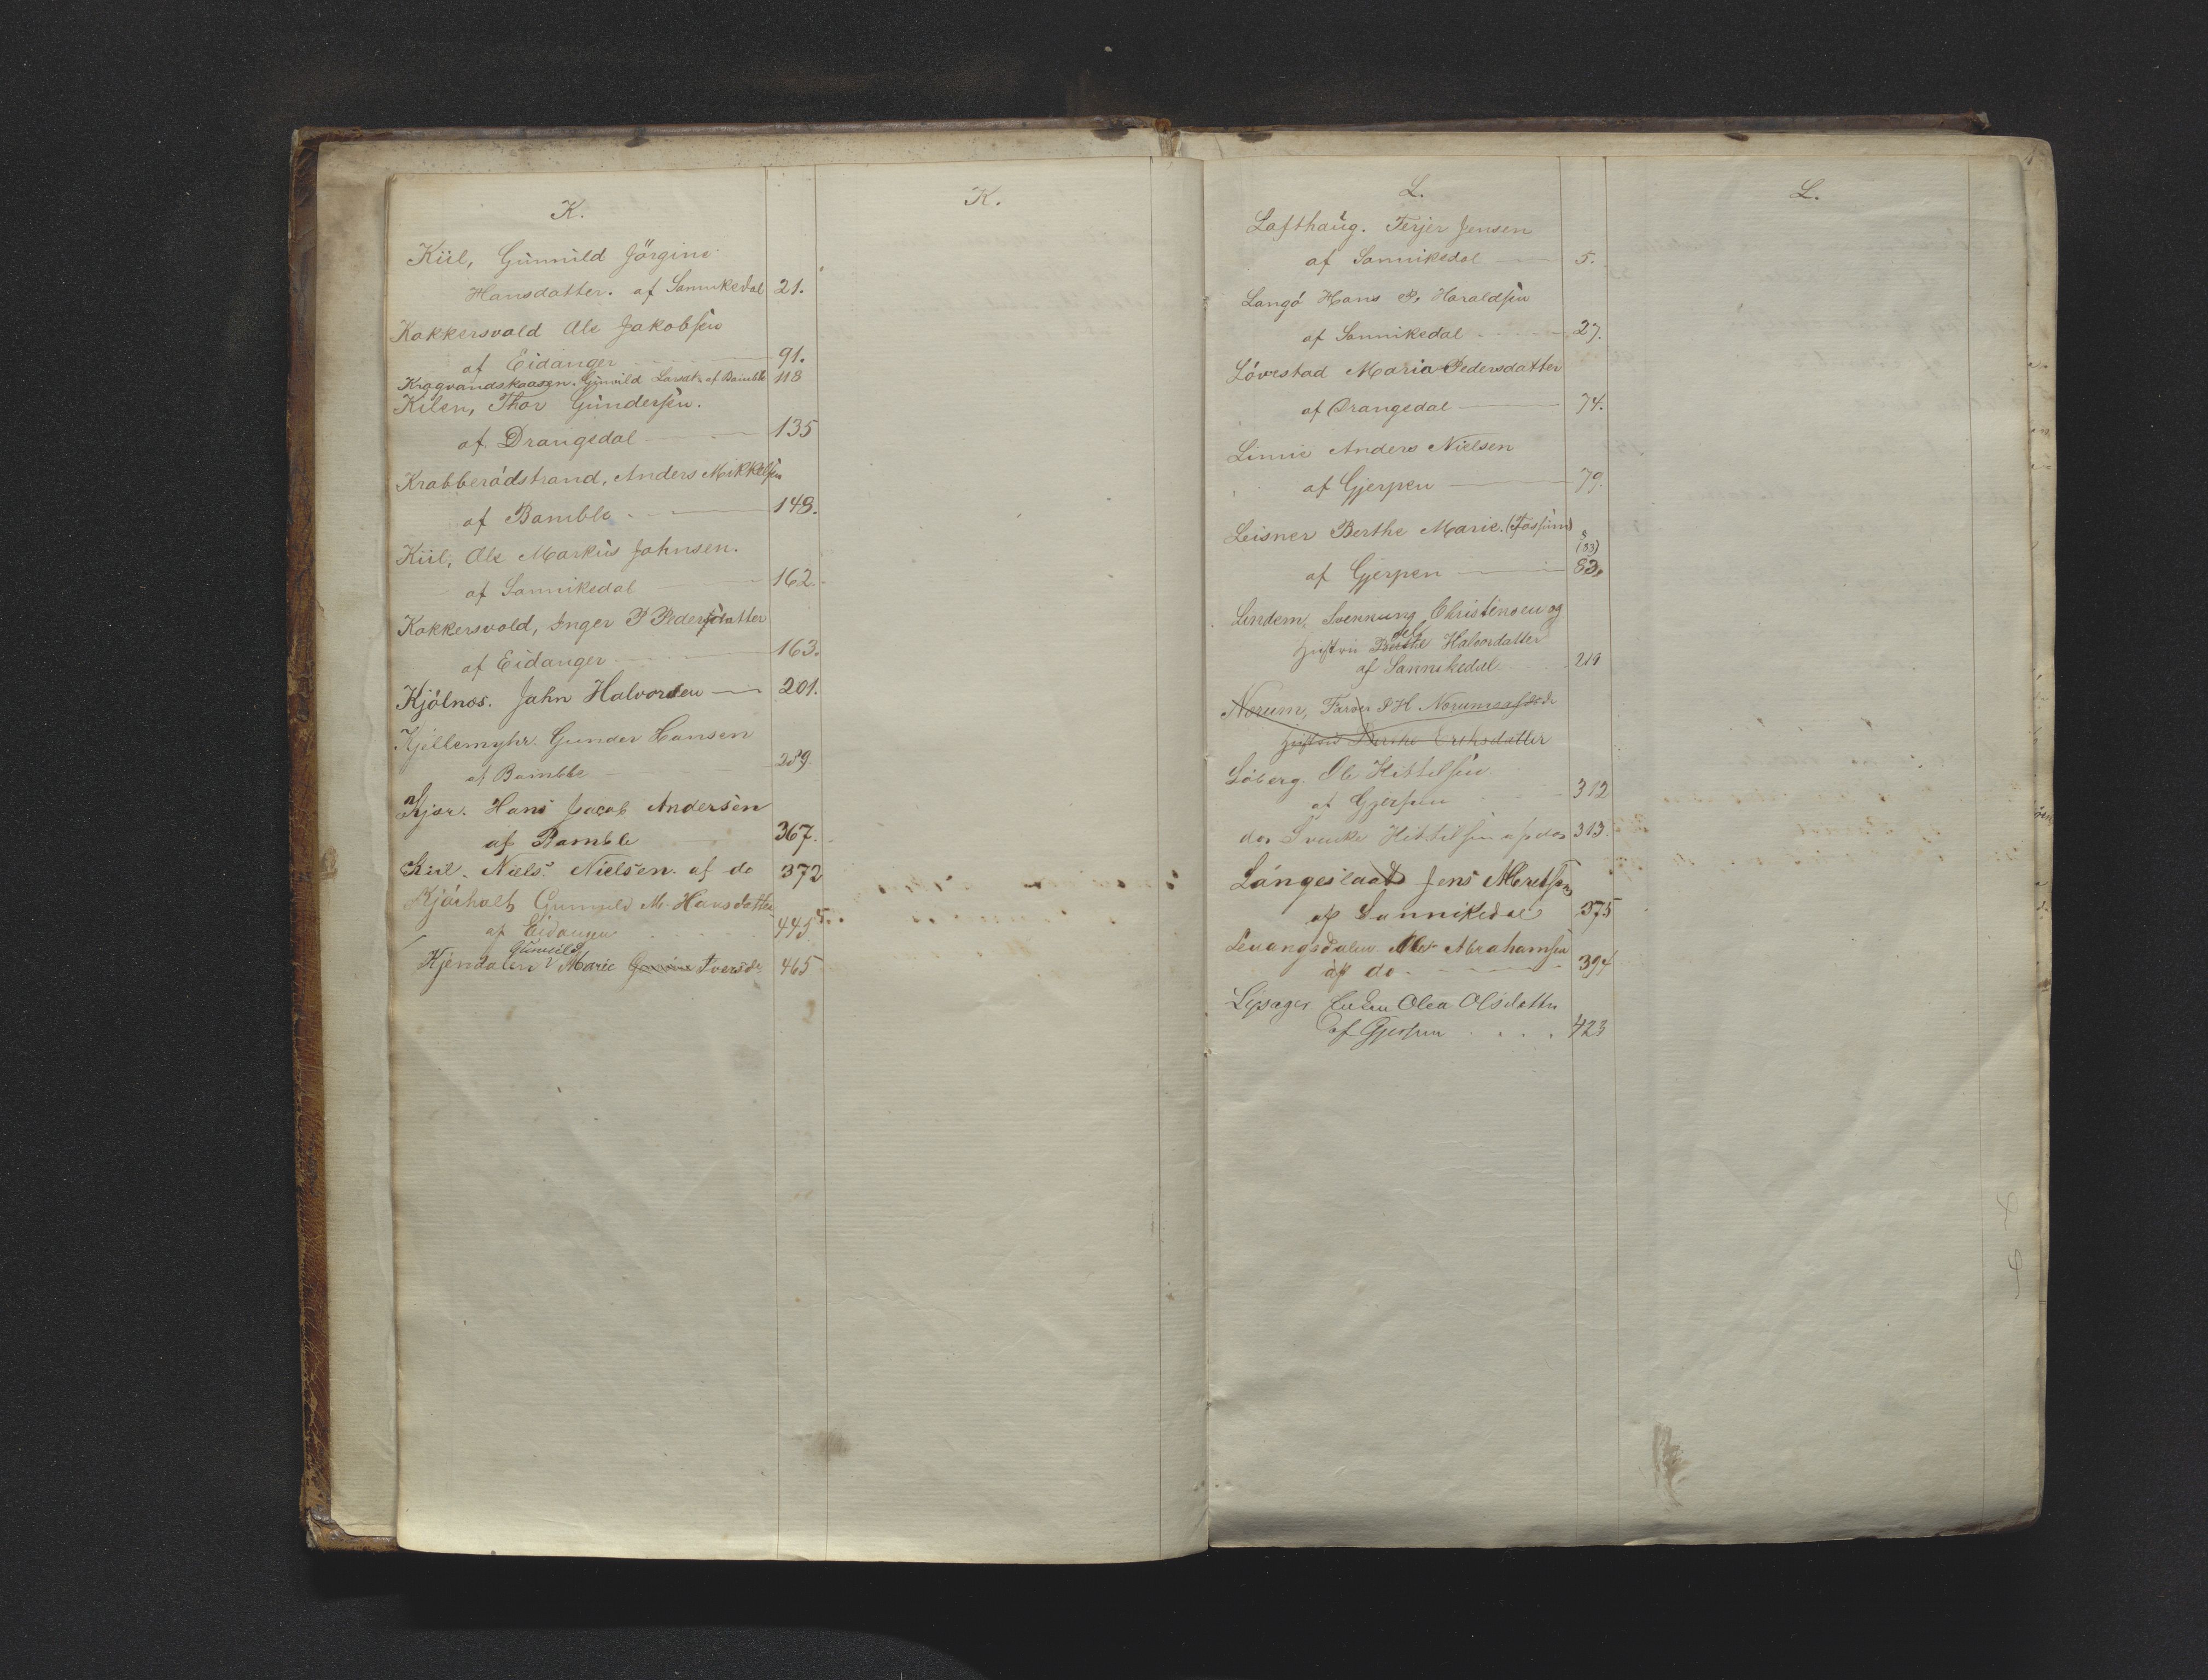 K.
Kiil, Gunnild Jørgine
Hansdatter. af Sannikedal 21.
Kokkersvold Ole Jakobsen
af Eidanger 91.
Kragvandskaasen. Gunild Larsdt. af Bamble 118
Kilen, Thor Gundersen.
af Drangedal 135
Krabberødstrand, Anders Mikkelsen
af Bamble 148.
Kiil, Ole Markus Johnsen.
af Sannikedal 162.
Kokkersvold, Inger P Pedersdatter
af Eidanger 163.
Kjølnes. John Halvorsen 201.
Kjellemyhr. Gunder Hansen
af Bamble 289.
Kjær. Hans Jacob Andersen
af Bamble 367.
Kiil. Niels Nielsen. af do 372
Kjørholt Gunnild M. Hansdatter
af Eidanger 445
Gunnild
Kjendalen Marie Iversd. 465
K.
L.
Lofthaug. Terjer Jensen
af Sannikedal 5.
Langø Hans P. Haraldsen
af Sannikedal 27.
Løvestad Maria Pedersdatter
af Drangedal 74.
Limie Anders Nielsen
af Gjerpen 79.
Leisner Berthe Marie. (Fossum)
(83)
af Gjerpen 83.
Lindem, Svennung Christensen og
Hustru Halvordatter
af Sannikedal 219
Norum, Farver P H Norum
Hustru Eriksdatter
Løberg. Ole Kittilsen
af Gjerpen 312
do. Svenke Kittilsen af do. 313.
Langeslaat Jens
af Sannikedal 375
Levangsdalen Abrahamsen
af do. 394
Lysager Olea Olsdatter
af Gjerpen 423
L.